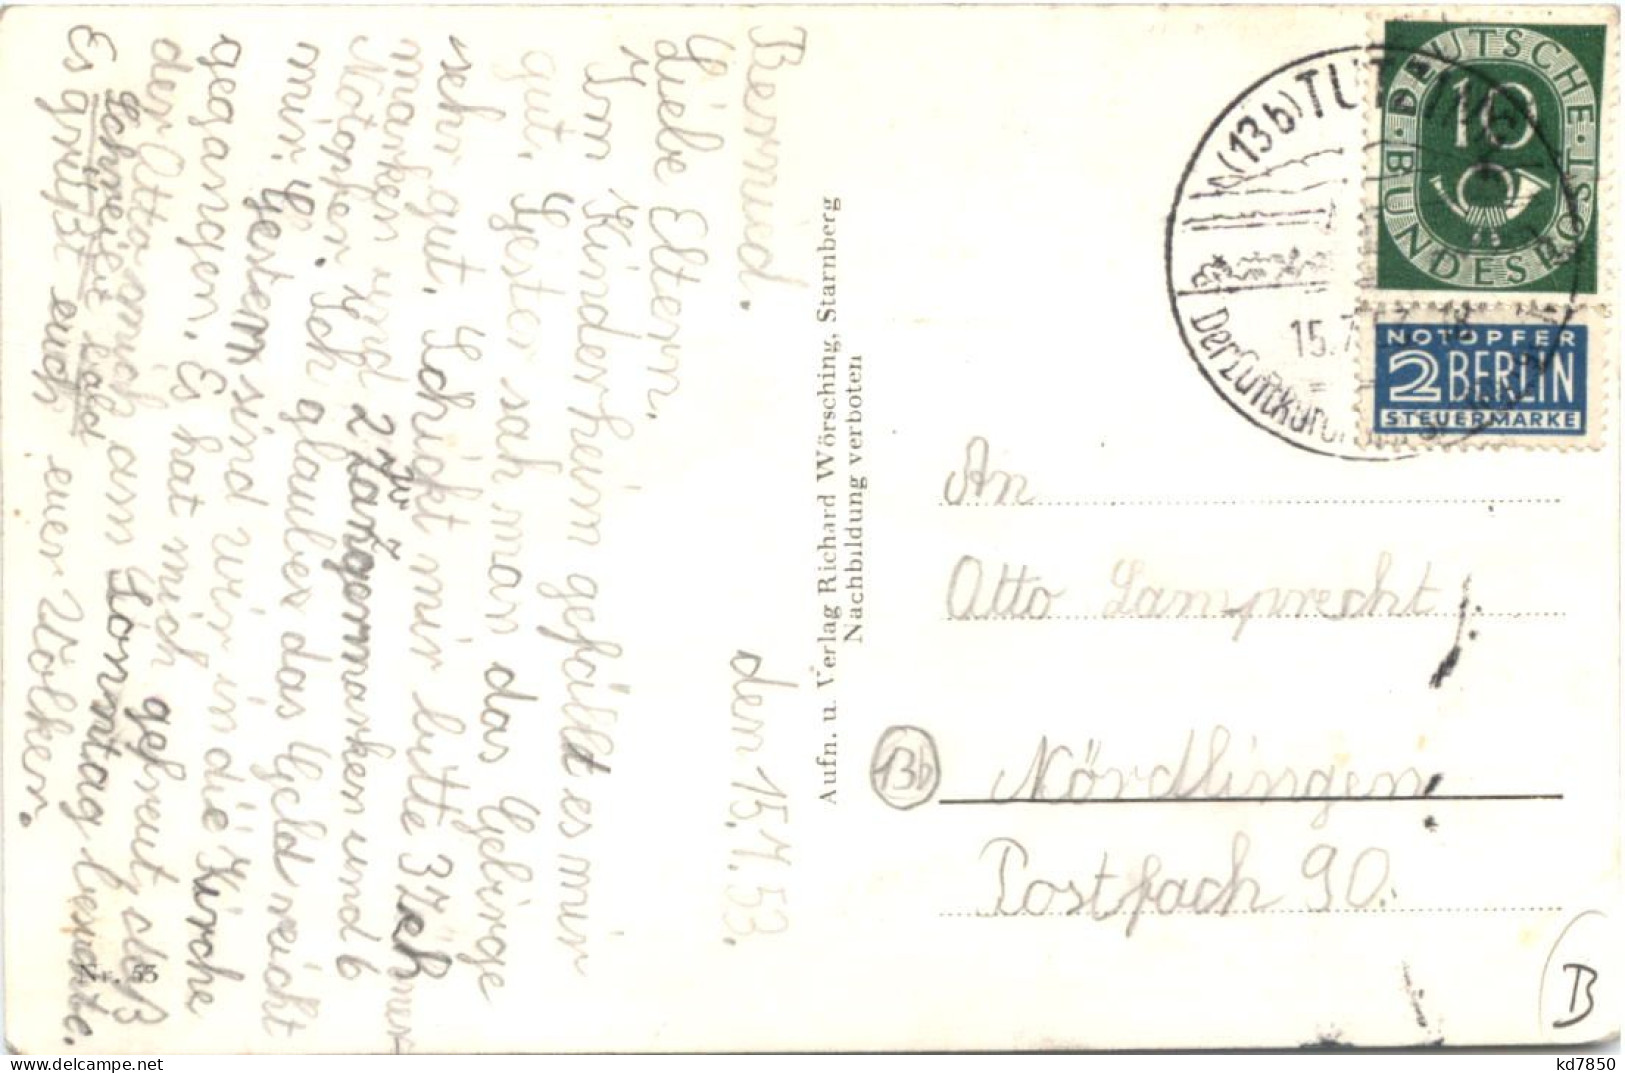 Bernried.
den 15.7.53.
Liebe Eltern.
Im Kinderheim gefällt es mir
gut. Gester sah man das Gebirge
sehr gut. Schickt mir bitte 3
marken und 2 zu 7
Notopfer. Ich glaube das Geld reicht
mir. Gestern sind wir in die Kirche
gegangen. Es hat mich gefreut daß
der Otto mich am Sonntag besuchte.
Schreibt bald
Es grüßt euch euer Volker.
Nr. 55
Aufn. u. Verlag Richard Wörsching, Starnberg
Nachbildung verboten
(13b) TUTZING
15.7.53-18
Der Luftkurort
DEUTSCHE BUNDESPOST
10
NOTOPFER
2 BERLIN
STEUERMARKE
An
Otto Lamprecht
13b
Nördlingen
Postfach 90.
B
kd7850